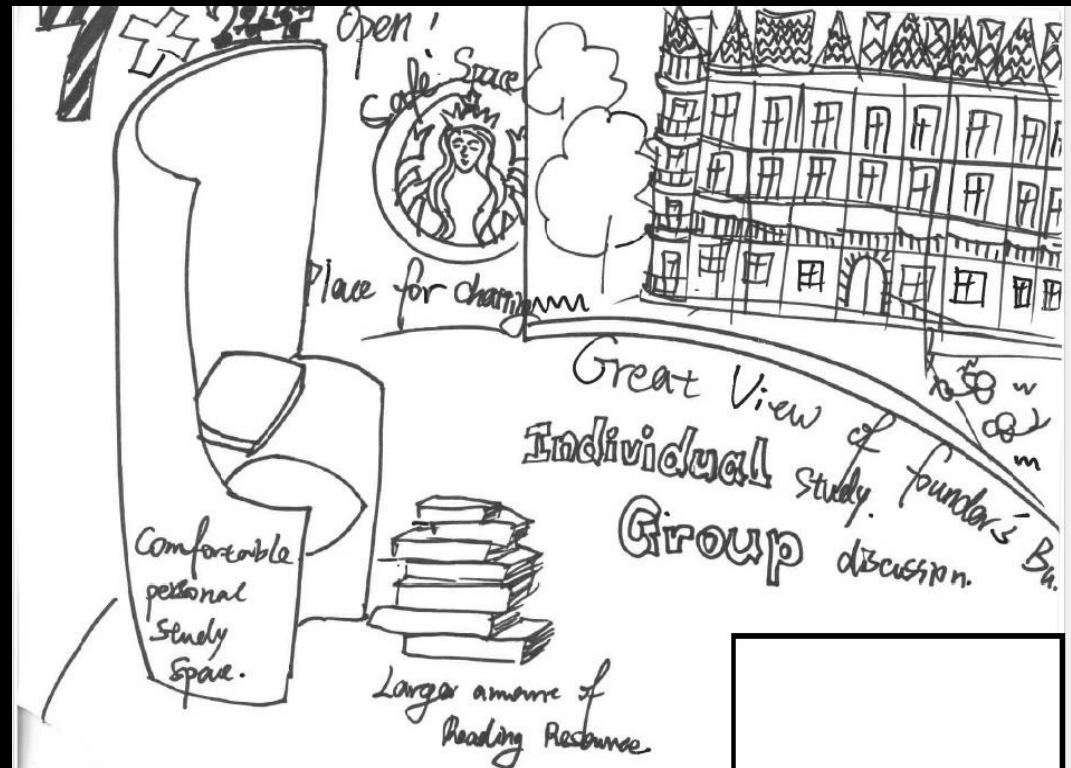 7 × 24
Open!
Café Space
Place for chatting
Great View of founder's Bu.
Individual study.
Group discussion.
Comfortable
personal
study
space.
Larger amount of
Reading Resource